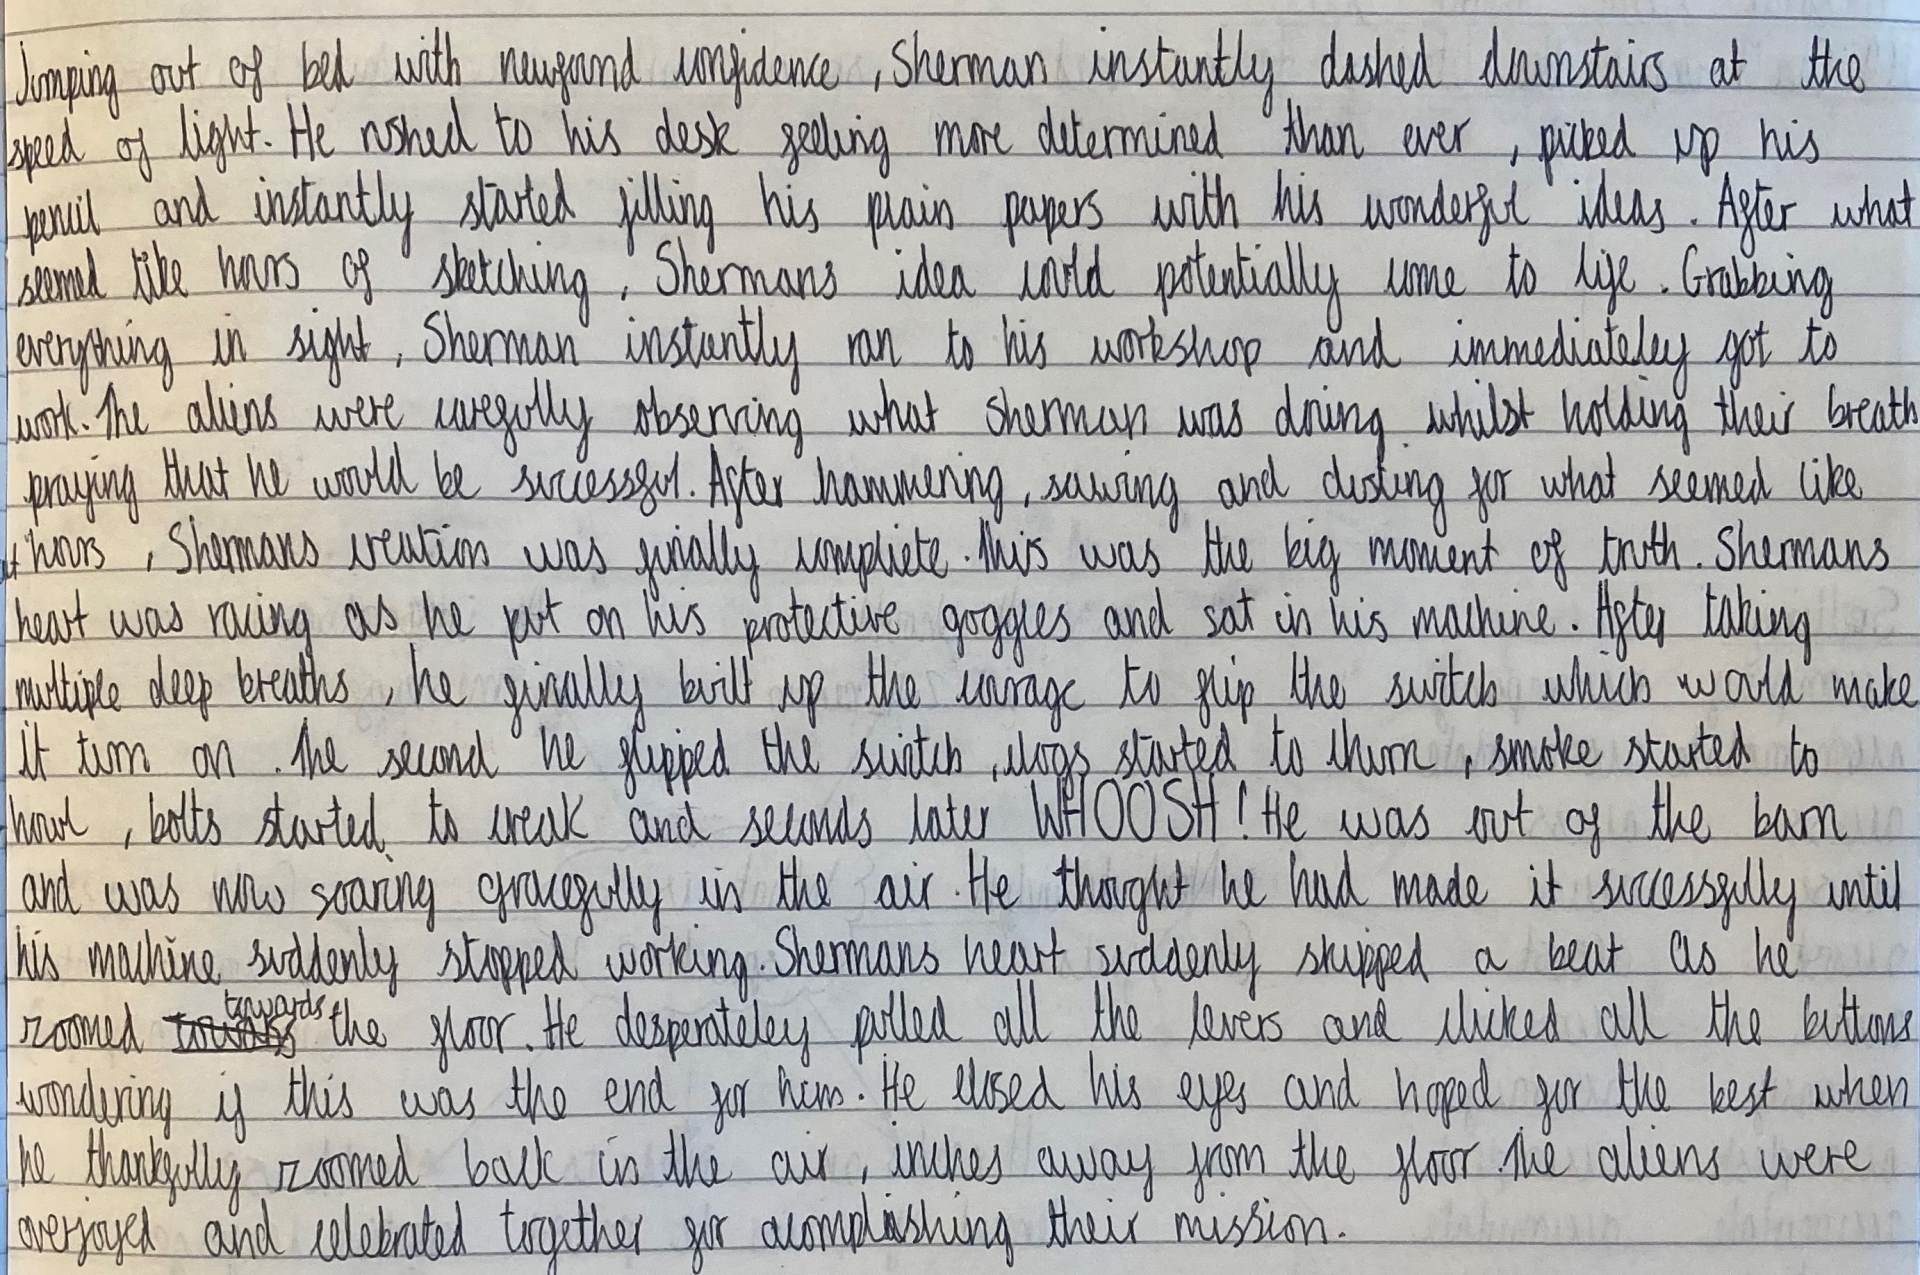 Jumping out of bed with newfound confidence , Sherman instantly dashed downstairs at the
speed of light. He rushed to his desk feeling more determined than ever , picked up his
pencil and instantly started filling his plain papers with his wonderful ideas . After what
seemed like hours of sketching , Shermans idea could potentially come to life . Grabbing
everything in sight , Sherman instantly ran to his workshop and immediateley got to
work. The aliens were carefully observing what Sherman was doing whilst holding their breath
praying that he would be successful. After hammering, sawing and dusting for what seemed like
hours , Shermans creation was finally complete . This was the big moment of truth . Shermans
heart was racing as he put on his protective goggles and sat in his machine . After taking
multiple deep breaths , he finally built up the courage to flip the switch which would make
it turn on . The second he flipped the switch , clogs started to churn , smoke started to
howl , bolts started to creak and seconds later WHOOSH ! He was out of the barn
and was now soaring gracefully in the air . He thought he had made it successfully until
his machine suddenly stopped working. Shermans heart suddenly skipped a beat as he
zoomed towards the floor. He desperateley pulled all the levers and clicked all the buttons
wondering if this was the end for him . He closed his eyes and hoped for the best when
he thankfully zoomed back in the air , inches away from the floor . The aliens were
overjoyed and celebrated together for acomplishing their mission .